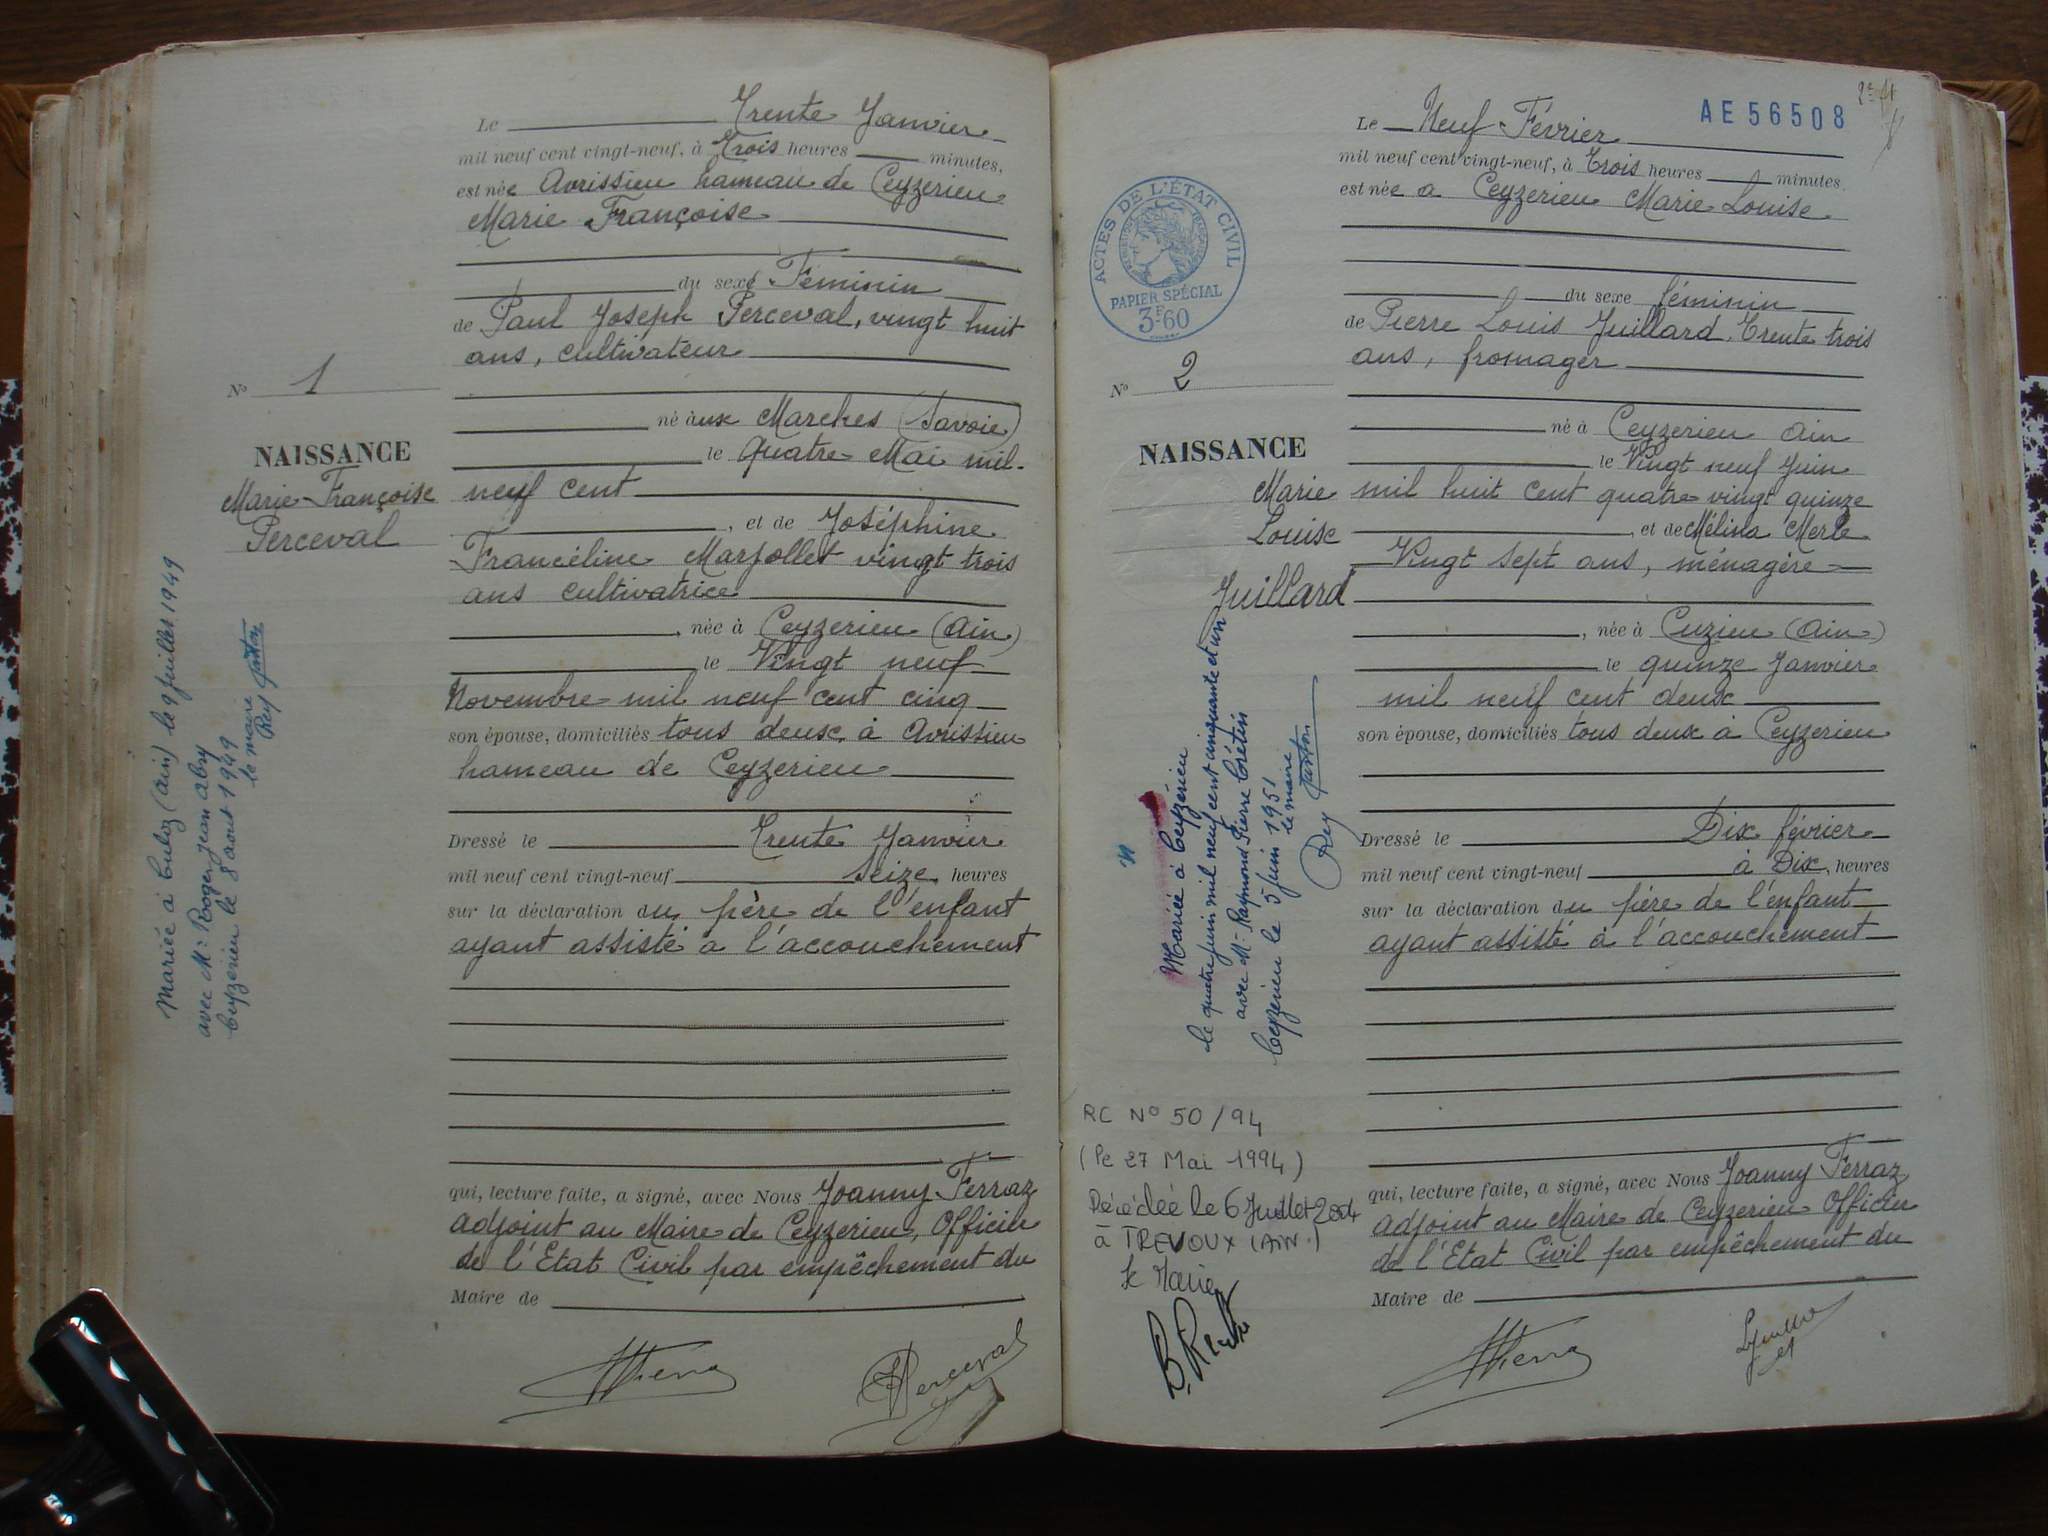 Le Trente Janvier
mil neuf cent vingt-neuf, à Trois heures minutes,
est née Avrissieu hameau de Ceyzerieu
Marie Françoise
du sexe Féminin
de Paul Joseph Perceval, vingt huit
ans, cultivateur
né aux Marches (Savoie)
le Quatre Mai mil
neuf cent
, et de Joséphine
Francéline Marjollet vingt trois
ans cultivatrice
, née à Ceyzerieu (Ain)
le Vingt neuf
Novembre mil neuf cent cinq
son épouse, domiciliés tous deux à Avrissieu
hameau de Ceyzerieu
Dressé le Trente Janvier
mil neuf cent vingt-neuf Seize heures
sur la déclaration du père de l'enfant
ayant assisté à l'accouchement
qui, lecture faite, a signé, avec Nous Joanny Ferraz
adjoint au Maire de Ceyzerieu, Officier
de l'Etat Civil par empêchement du
Maire de
Perceval
No 1
NAISSANCE
Marie Françoise
Perceval
Mariée à Culoz (ain) le 9 juillet 1949
avec Mr Roger jean Abry
Ceyzerieu le 8 aout 1949
le maire
Rey
AE 56508
Le Neuf Février
mil neuf cent vingt-neuf, à Trois heures minutes
est née a Ceyzerieu Marie Louise
du sexe féminin
de Pierre Louis Juillard, Trente trois
ans, fromager
né à Ceyzerieu Ain
le Vingt neuf Juin
mil huit cent quatre vingt quinze
, et de Mélina Merle
Vingt sept ans, ménagère
, née à Cuzieu (Ain)
le quinze Janvier
mil neuf cent deux
son épouse, domiciliés tous deux à Ceyzerieu
Dressé le Dix février
mil neuf cent vingt-neuf à Dix, heures
sur la déclaration du père de l'enfant
ayant assisté à l'accouchement
qui, lecture faite, a signé, avec Nous Joanny Ferraz
adjoint au Maire de Ceyzerieu Officier
de l'Etat Civil par empêchement du
Maire de
ACTES DE L'ÉTAT CIVIL
PAPIER SPÉCIAL
3F60
No 2
NAISSANCE
Marie
Louise
Juillard
Mariée à Ceyzérieu
le quatre juin mil neuf cent cinquante et un
avec Mr Raymond Pierre Crétin
Ceyzérieu le 5 juin 1951
le maire
Rey
RC No 50/94
(le 27 Mai 1994)
Décédée le 6 Juillet 2004
à TREVOUX (AIN.)
le Maire